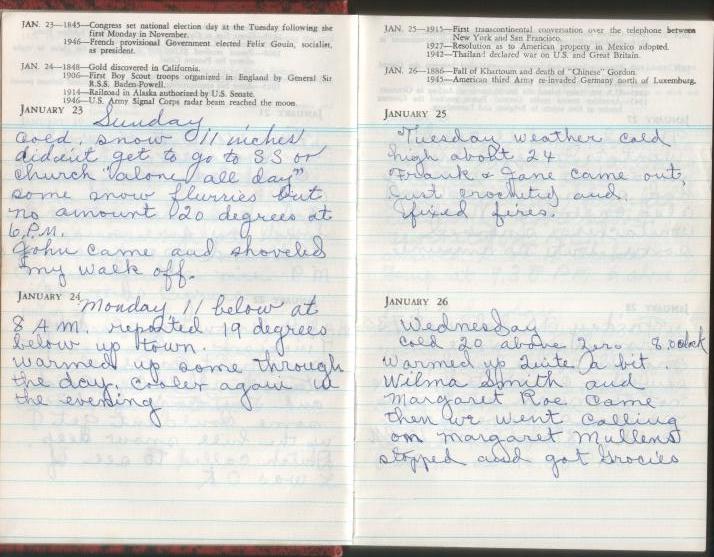 JAN. 23—1845—Congress set national election day at the Tuesday following the
first Monday in November.
1946—French provisional Government elected Felix Gouin, socialist,
as president.
JAN. 24—1848—Gold discovered in California.
1906—First Boy Scout troops organized in England by General Sir
R.S.S. Baden-Powell.
1914—Railroad in Alaska authorized by U.S. Senate.
1946—U.S. Army Signal Corps radar beam reached the moon.
JANUARY 23
Sunday
Cold, snow 11 inches
dident get to go to SS or
church "alone all day"
some snow flurries but
no amount 20 degrees at
6 P.M.
John came and shoveled
my walk off.
JANUARY 24
Monday 11 below at
8 A.M. reported 19 degrees
below up town.
warmed up some through
the day. cooler again in
the evening
JAN. 25—1915—First transcontinental conversation over the telephone between
New York and San Francisco.
1927—Resolution as to American property in Mexico adopted.
1942—Thailand declared war on U.S. and Great Britain.
JAN. 26—1886—Fall of Khartoum and death of "Chinese" Gordon.
1945—American third Army re-invaded Germany north of Luxemburg.
JANUARY 25
Tuesday weather cold
high about 24
Frank & Jane came out,
Just crochetied and
fixed fires.
JANUARY 26
Wednesday
cold 20 above zero 8.oclock
Warmed up Quite a bit.
Wilma Smith and
Margaret Roe came
then we went calling
on Margaret Mullens
stopped and got Grocies